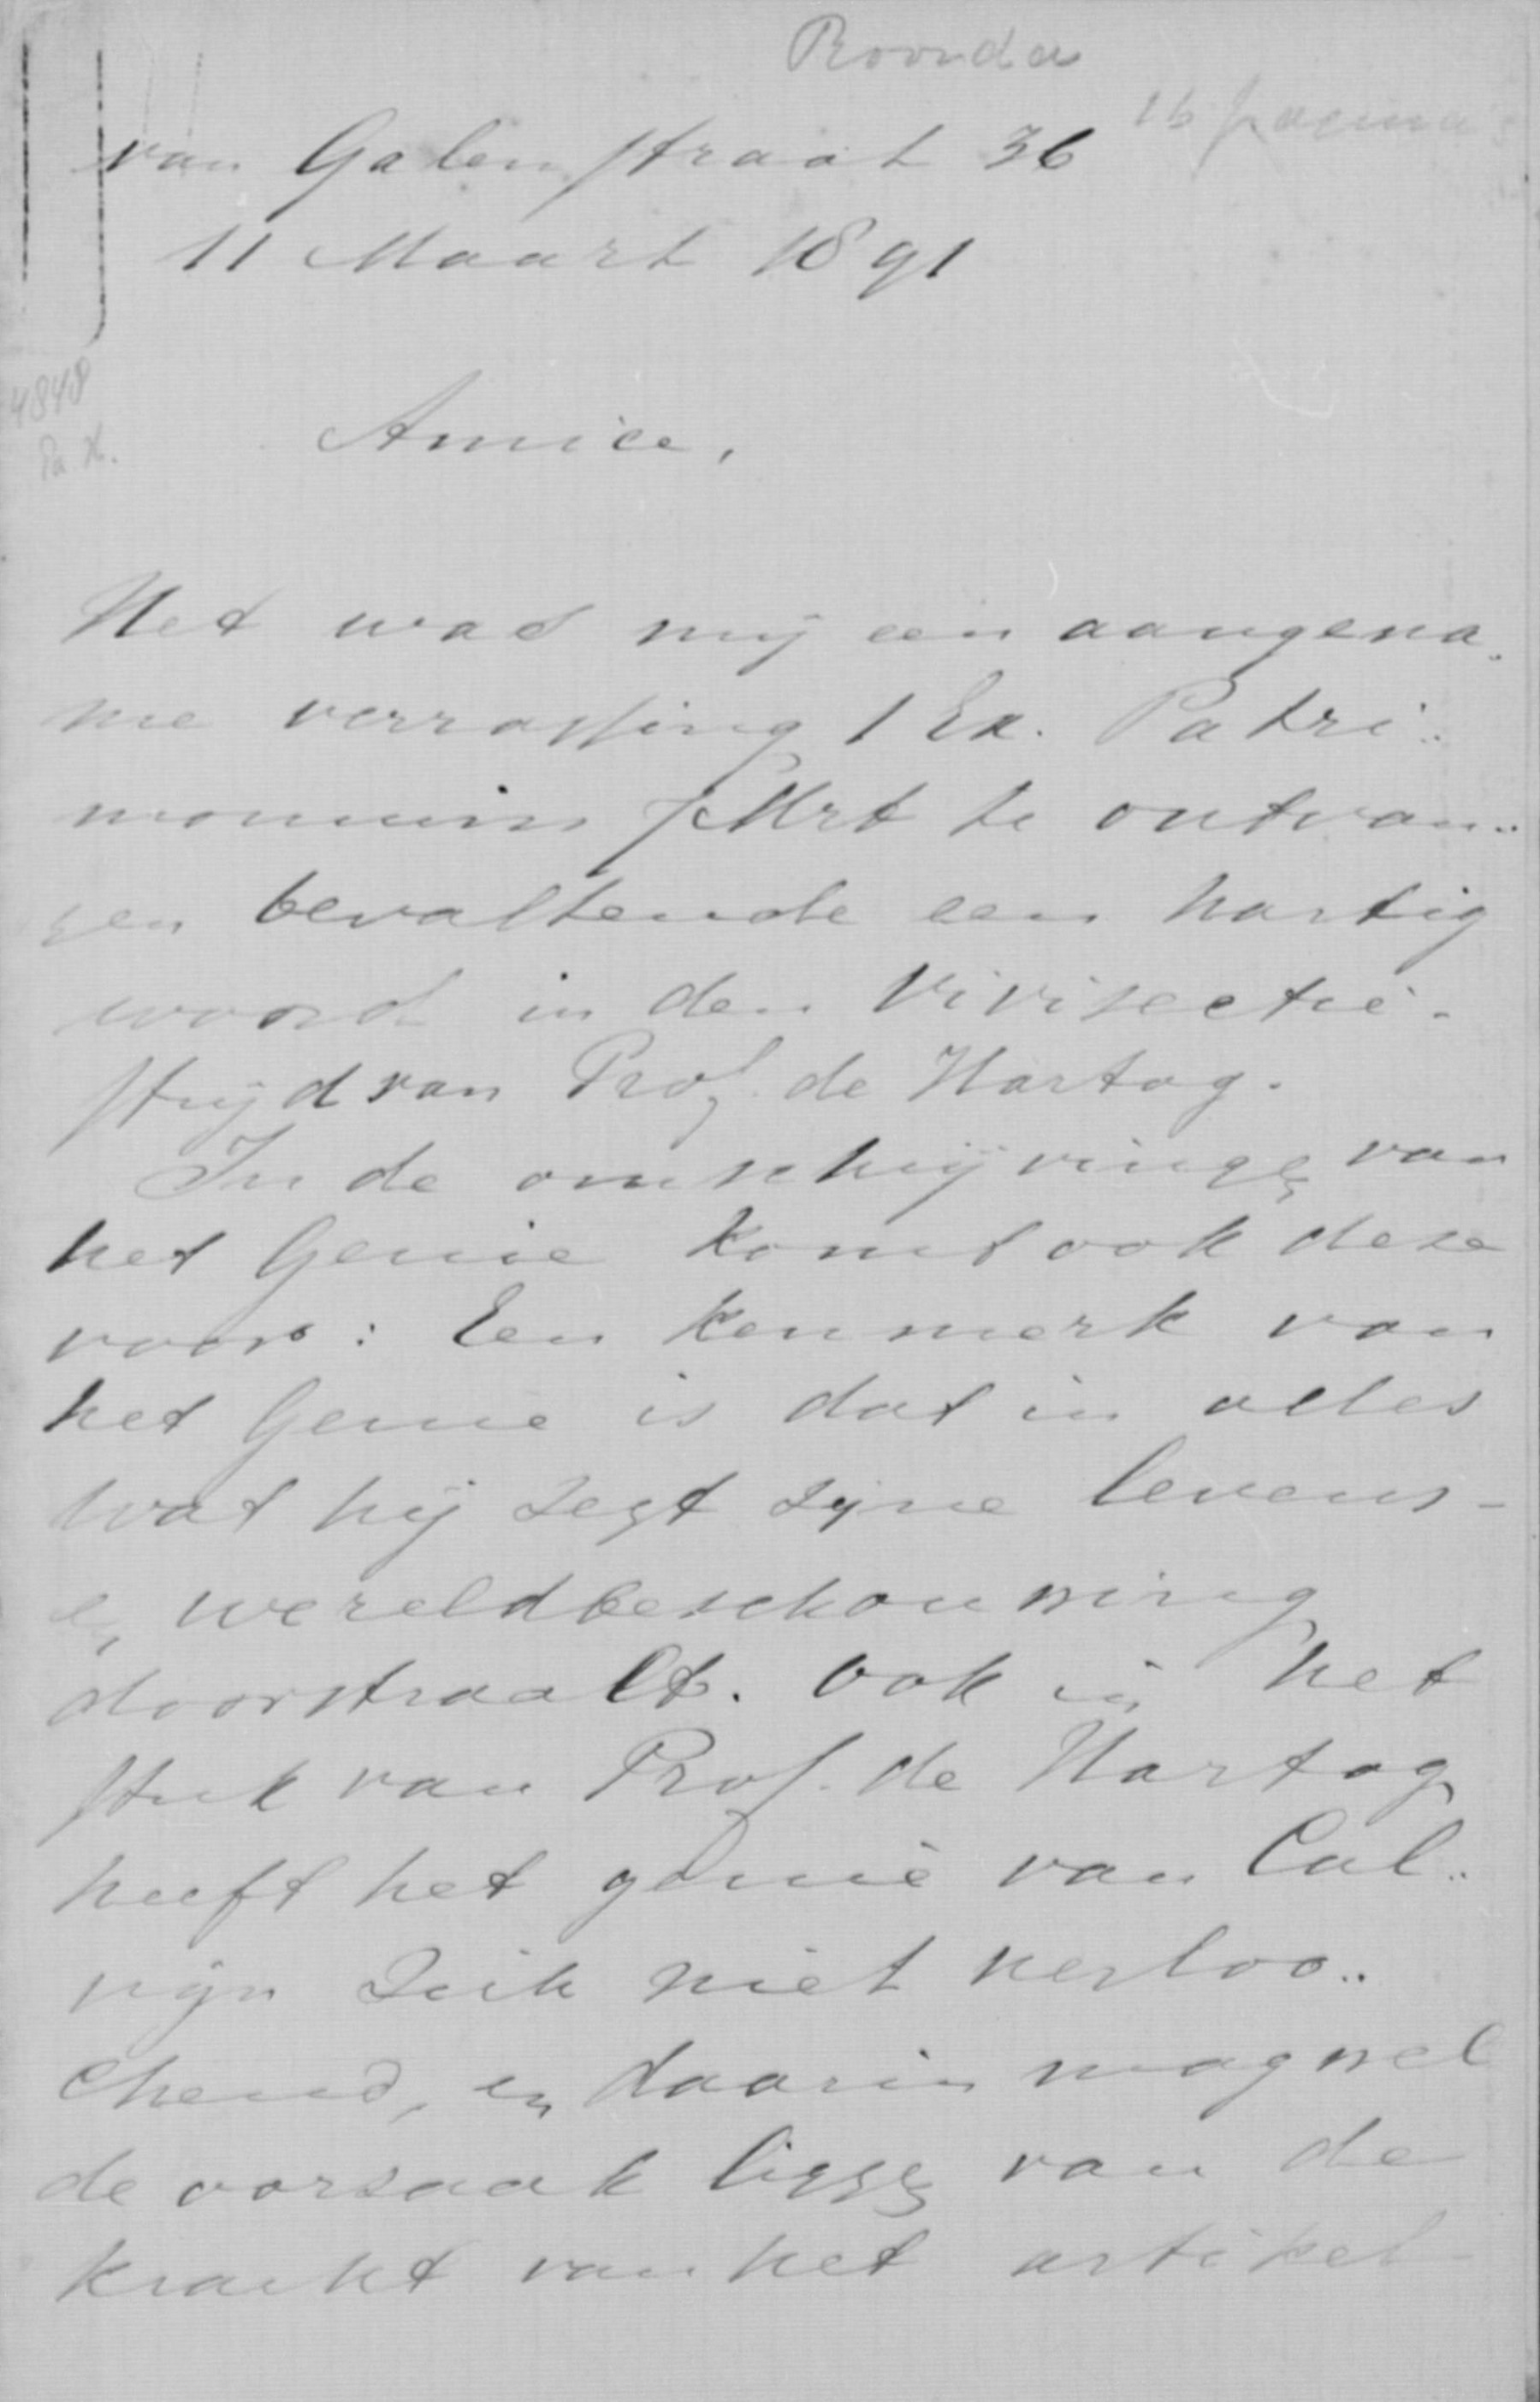 Roorda
van Galenstraat 36
11 Maart 1891
4848
Amice,
Het was mij een aangena-
me verrassing 1 Ex. Patri-
monium 7 Mrt te ontvan-
gen bevattende een hartig
woord in den Vivisectie-
strijd van Prof. de Hartog.
In de omschrijvingen van
het Genie komt ook deze
voor: Een kenmerk van
het Genie is dat in alles
wat hij zegt zijne levens-
en wereldbeschouwing
doorstraalt. Ook in het
stuk van Prof. de Hartog
heeft het genie van Cal-
vijn zich niet verloo-
chend, en daarin mag wel
de oorzaak liggen van de
kracht van het artikel